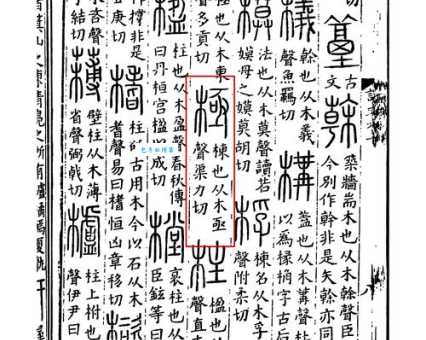 切
古文
榦
築牆耑木也从木倝聲臣
今別作幹非是矢榦亦同
檥
榦也从木義
聲魚羈切
構
蓋也从木冓聲杜
以爲椽桷字古后
模
法也从木莫聲讀若
嫫母之嫫莫胡切
桴
棟名从木孚
聲附柔切
棟也从木東
聲多貢切
極
棟也从木亟
聲渠力切
柱
楹也从木
聲直
楹
柱也从木盈聲春秋傳
曰丹桓宮楹以成切
樘
衺柱也从
臣鉉等曰
非是
庚切
榰
柱古用木今以石从木
耆聲易曰榰恒凶章移切
子結切
欂
壁柱从木薄
省聲弼戟切
櫨
柱上柎也从
聲伊尹曰
山之東青鳧之所有櫨橘焉夏孰